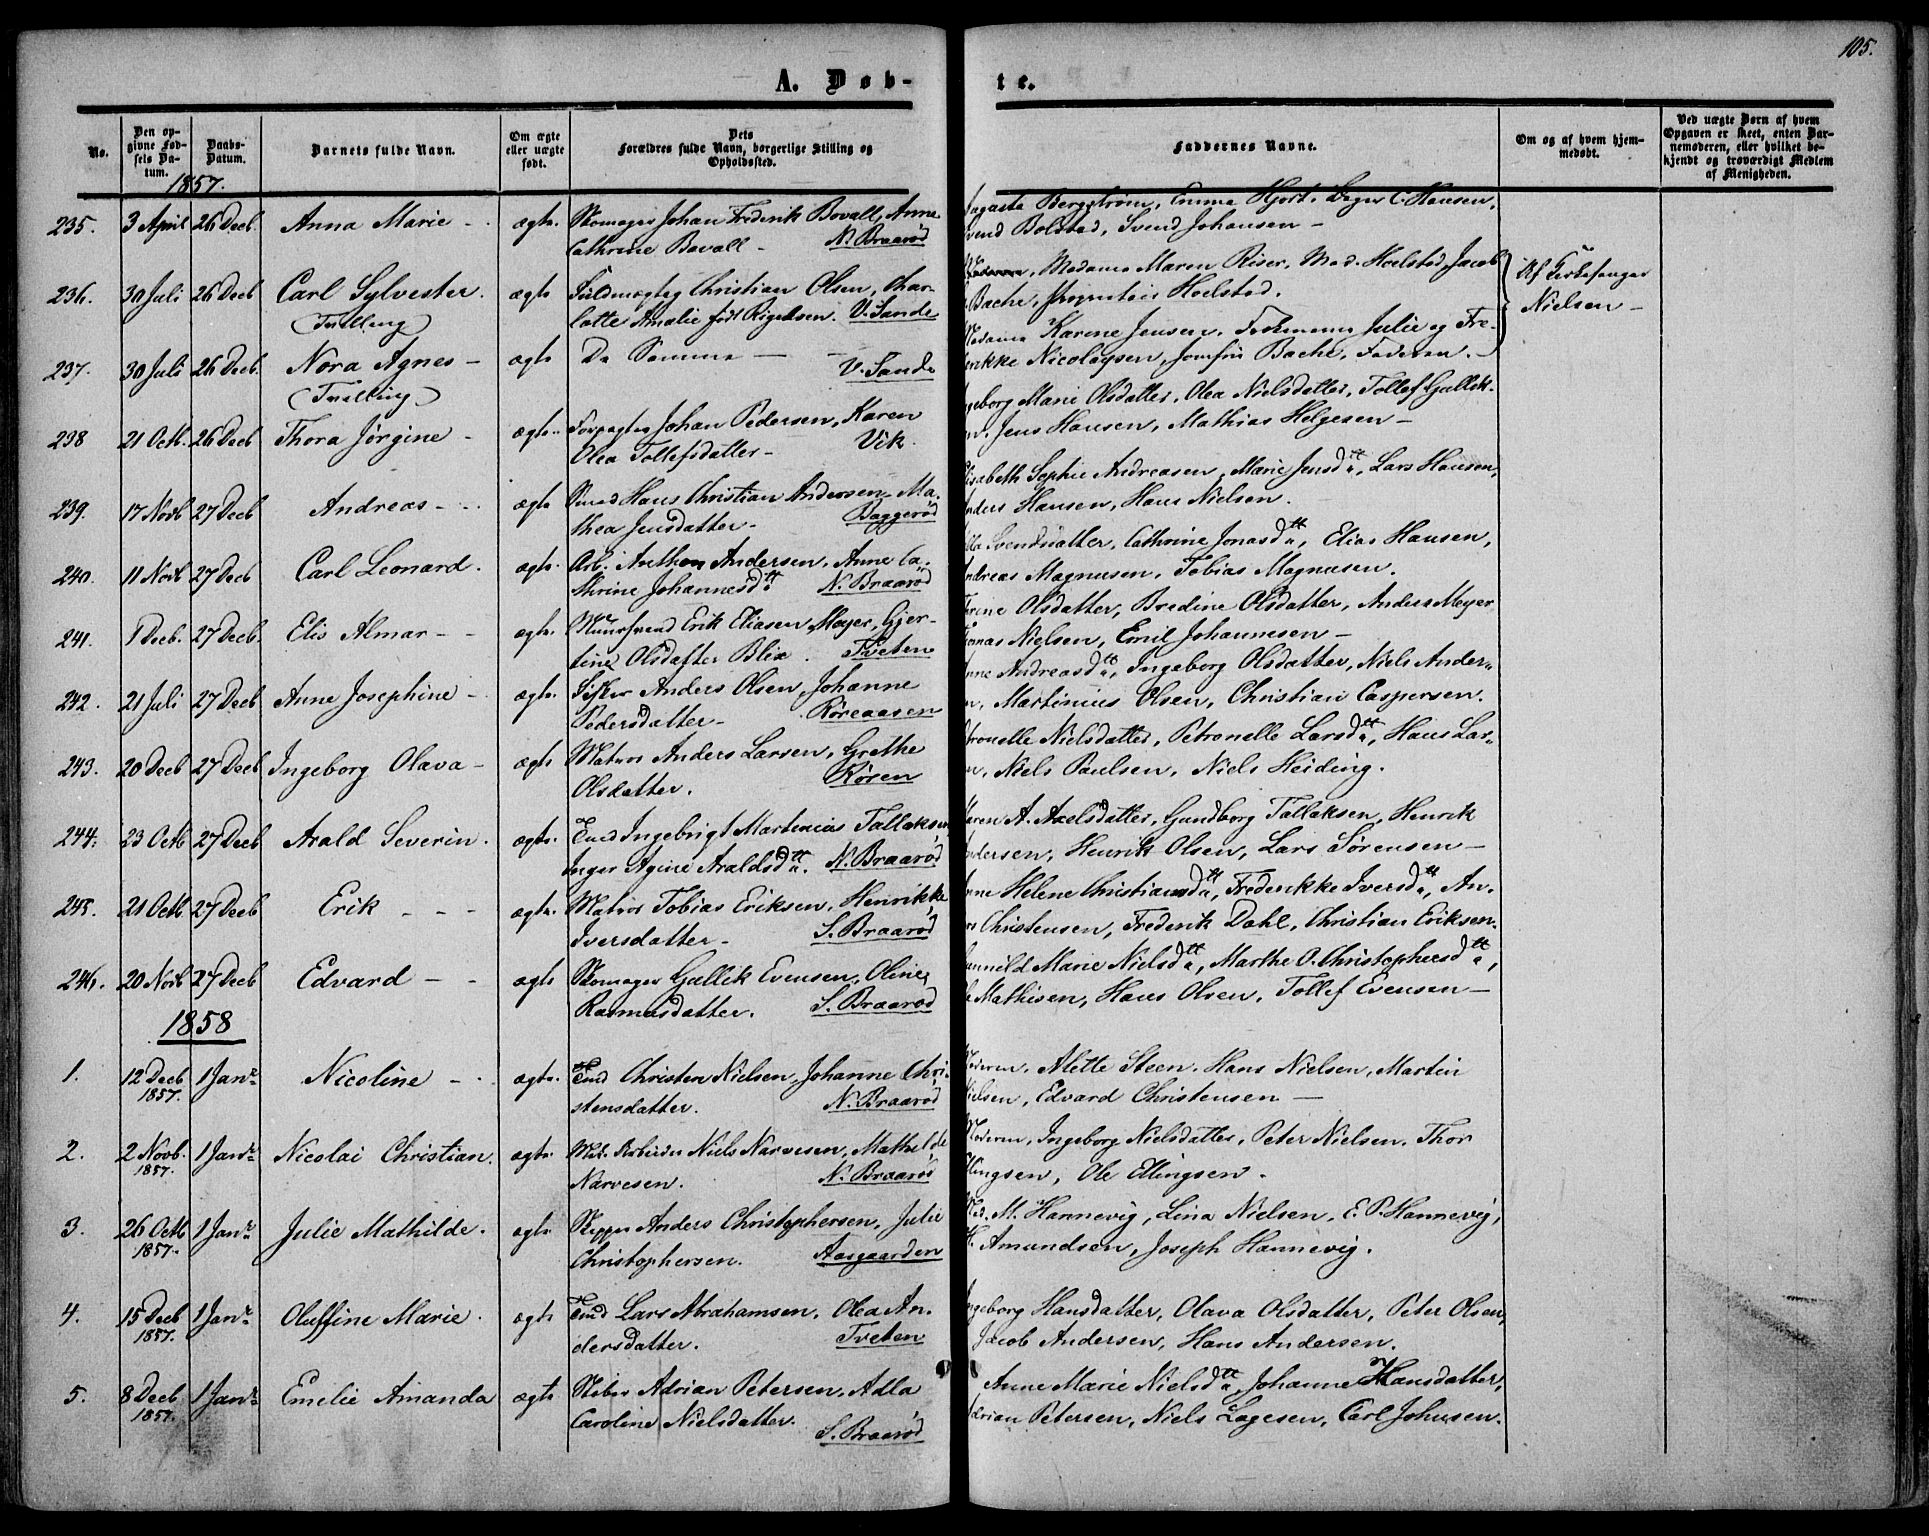 105.
A. Døb-
te.
No.
Den op-
givne Fød-
sels Da-
tum.
Daabs-
Datum.
Barnets fulde Navn.
Om ægte
eller uægte
født.
Dets
Forældres fulde Navn, borgerlige Stilling og
Opholdssted.
Faddernes Navne.
Om og af hvem hjem-
medøbt.
Ved uægte Børn af hvem
Opgaven er skeet, enten Bar-
nemoderen, eller hvilket be-
kjendt og troværdigt Medlem
af Menigheden.
1857.
235. 3 April 26 Decb. Anna Marie - ægte. Skomager Johan Frederik Bovall, Anne
Cathrine Bovall - N. Braarød
Bergstrøm, Emma Hjort, C. Hansen,
Bolstad, Svend Johansen -
236. 30 Juli 26 Decb Carl Sylvester. ægte Fuldmægtig Christian Olsen, Char-
(Tvilling) lotte Amalie født Rigelsen. V. Sande
Madame Maren Riser, Mad. Hoelstad, Jacob
Bache, Hoelstad.
Af Kirkesanger
Nielsen -
237. 30 Juli 26 Decb. Nora Agnes - ægte De Samme - V. Sande
(Tvilling)
Madame Karene Jensen, Julie og Fre-
rikke Nicolaysen, Bache, Faderen.
238 21 Octb. 26 Decb Thora Jørgine - ægte. Forpagter Johan Pedersen, Karen
Olea Tollefsdatter - Vik.
Ingeborg Marie Olsdatter, Olea Nielsdatter, Tollef Gullik-
Jens Hansen, Mathias Helgesen -
239. 17 Novb 27 Decb Andreas - ægte Smed Hans Christian Andersen, Ma-
thea Jensdatter - Baggerød
Elisabeth Sophie Andreasen, Marie Jensdtt, Lars Hansen,
Anders Hansen, Hans Nielsen.
240. 11 Novb 27 Decb Carl Leonard. ægte. Arb. Anthon Andersen, Anne Ca-
thrine Johannesdtt N. Braarød
Svendsdatter, Cathrine Jonasdtt, Elias Hansen,
Andreas Magnusen, Tobias Magnusen.
241. 1 Decb. 27 Decb. Elis Almar - ægte. Muursvend Erik Eliasen Meyer, Gjer-
tine Olsdatter Blix. Tveten
Olsdatter, Bredine Olsdatter, Anders Meyer,
Thomas Nielsen, Emil Johannesen -
242. 21 Juli 27 Decb Anne Josephine - ægte. Fisker Anders Olsen, Johanne
Pedersdatter - Røreaasen
Anne Andreasdtt, Ingeborg Olsdatter, Niels Ander-
Martinius Olsen, Christian Caspersen.
243. 20 Decb 27 Decb Ingeborg Olava - ægte Matros Anders Larsen, Grethe
Olsdatter. Røren
Petronelle Nielsdatter, Petronelle Larsdtt, Hans Lar-
Niels Paulsen, Niels Heiding.
244. 23 Octb 27 Decb Arald Severin. ægte. Tmd Ingebrigt Martinius Tallaksen
Inger Agine Araldsdtt. N. Braarød
Maren A. Axelsdatter, Gundborg Tallaksen, Henrik
Andersen, Henrik Olsen, Lars Sørensen -
245. 21 Octb 27 Decb Erik - ægte. Matros Tobias Eriksen, Henrikke
Iversdatter - S. Braarød
Anne Helene Christiansdtt, Frederikke Iversdtt, An-
Christensen, Frederik Dahl, Christian Eriksen.
246. 20 Novb 27 Decb Edvard - ægte Skomager Gullik Evensen, Oline
Rasmusdatter. S. Braarød
Gunnild Marie Nielsdtt, Marthe O. Christophersdtt,
Mathisen, Hans Olsen, Tollef Evensen -
1858
1. 12 Decb 1857. 1 Janr. Nicoline - ægte. Tmd Christen Nielsen, Johanne Chri-
stensdatter. N. Braarød
Moderen, Alette Steen, Hans Nielsen, Martin
Nielsen, Edvard Christensen -
2. 2 Novb. 1857. 1 Janr. Nicolai Christian. ægte. Mat. Arbeider Niels Narvesen, Mathilde
Narvesen. N. Braarød
Moderen, Ingeborg Nielsdatter, Peter Nielsen, Thor
Ellingsen, Ole Ellingsen.
3. 26 Octb 1857. 1 Janr. Julie Mathilde. ægte Skipper Anders Christophersen, Julie
Christophersen. Aasgaarden
Mad. M. Hannevig, Lina Nielsen, E. P. Hannevig,
H. Amundsen, Joseph Hannevig.
4. 15 Decb 1857. 1 Janr. Oluffine Marie. ægte Tmd Lars Abrahamsen, Olea An-
dersdatter. Tveten
Ingeborg Hansdatter, Olava Olsdatter, Peter Olsen,
Jacob Andersen, Hans Andersen.
5. 8 Decb 1857. 1 Janr. Emelie Amanda ægte Reber Adrian Petersen, Adla
Caroline Nielsdatter. S. Braarød
Anne Marie Nielsdtt, Johanne Hansdatter,
Adrian Petersen, Niels Lagesen, Carl Johnsen.